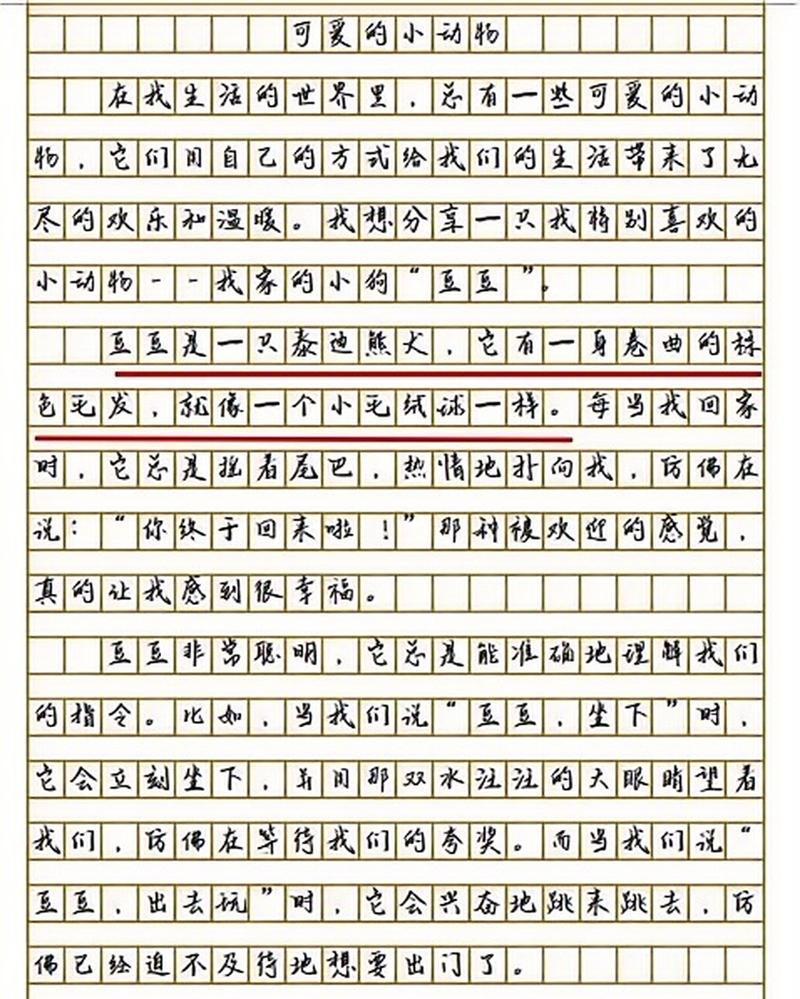 可爱的小动物
在我生活的世界里，总有一些可爱的小动
物，它们用自己的方式给我们的生活带来了无
尽的欢乐和温暖。我想分享一只我特别喜欢的
小动物--我家的小狗“豆豆”。
豆豆是一只泰迪熊犬，它有一身卷曲的棕
色毛发，就像一个小毛绒球一样。每当我回家
时，它总是摇着尾巴，热情地扑向我，仿佛在
说：“你终于回来啦！”那种被欢迎的感觉，
真的让我感到很幸福。
豆豆非常聪明，它总是能准确地理解我们
的指令。比如，当我们说“豆豆，坐下”时，
它会立刻坐下，并用那双水汪汪的大眼睛望着
我们，仿佛在等待我们的夸奖。而当我们说“
豆豆，出去玩”时，它会兴奋地跳来跳去，仿
佛已经迫不及待地想要出门了。